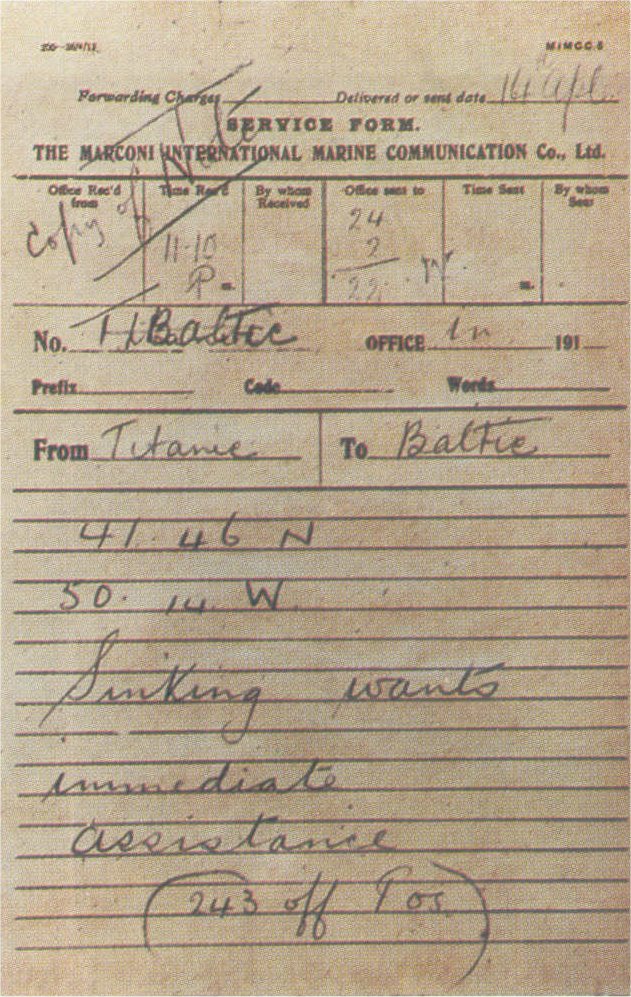 MIMCC.5
Forwarding Charges Delivered or sent date 14 Apl
SERVICE FORM.
THE MARCONI INTERNATIONAL MARINE COMMUNICATION Co., Ltd.
Office Rec'd from Time Rec'd By whom Received Office sent to Time Sent By whom Sent
Copy of
11-10 P m. 24
2
22 m.
No. Baltic OFFICE 191
Prefix Code Words
From Titanic To Baltic
41.46 N
50.14 W.
Sinking wants
immediate
assistance
(243 off Pos.)